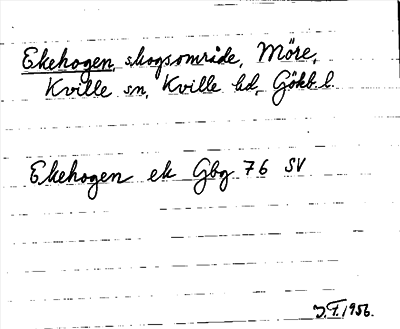 Ekehogen, skogsområde, Möre,
Kville sn, Kville hd, Gökb. l.
Ekehogen ek Gbg 76 SV
J.F. 1956.